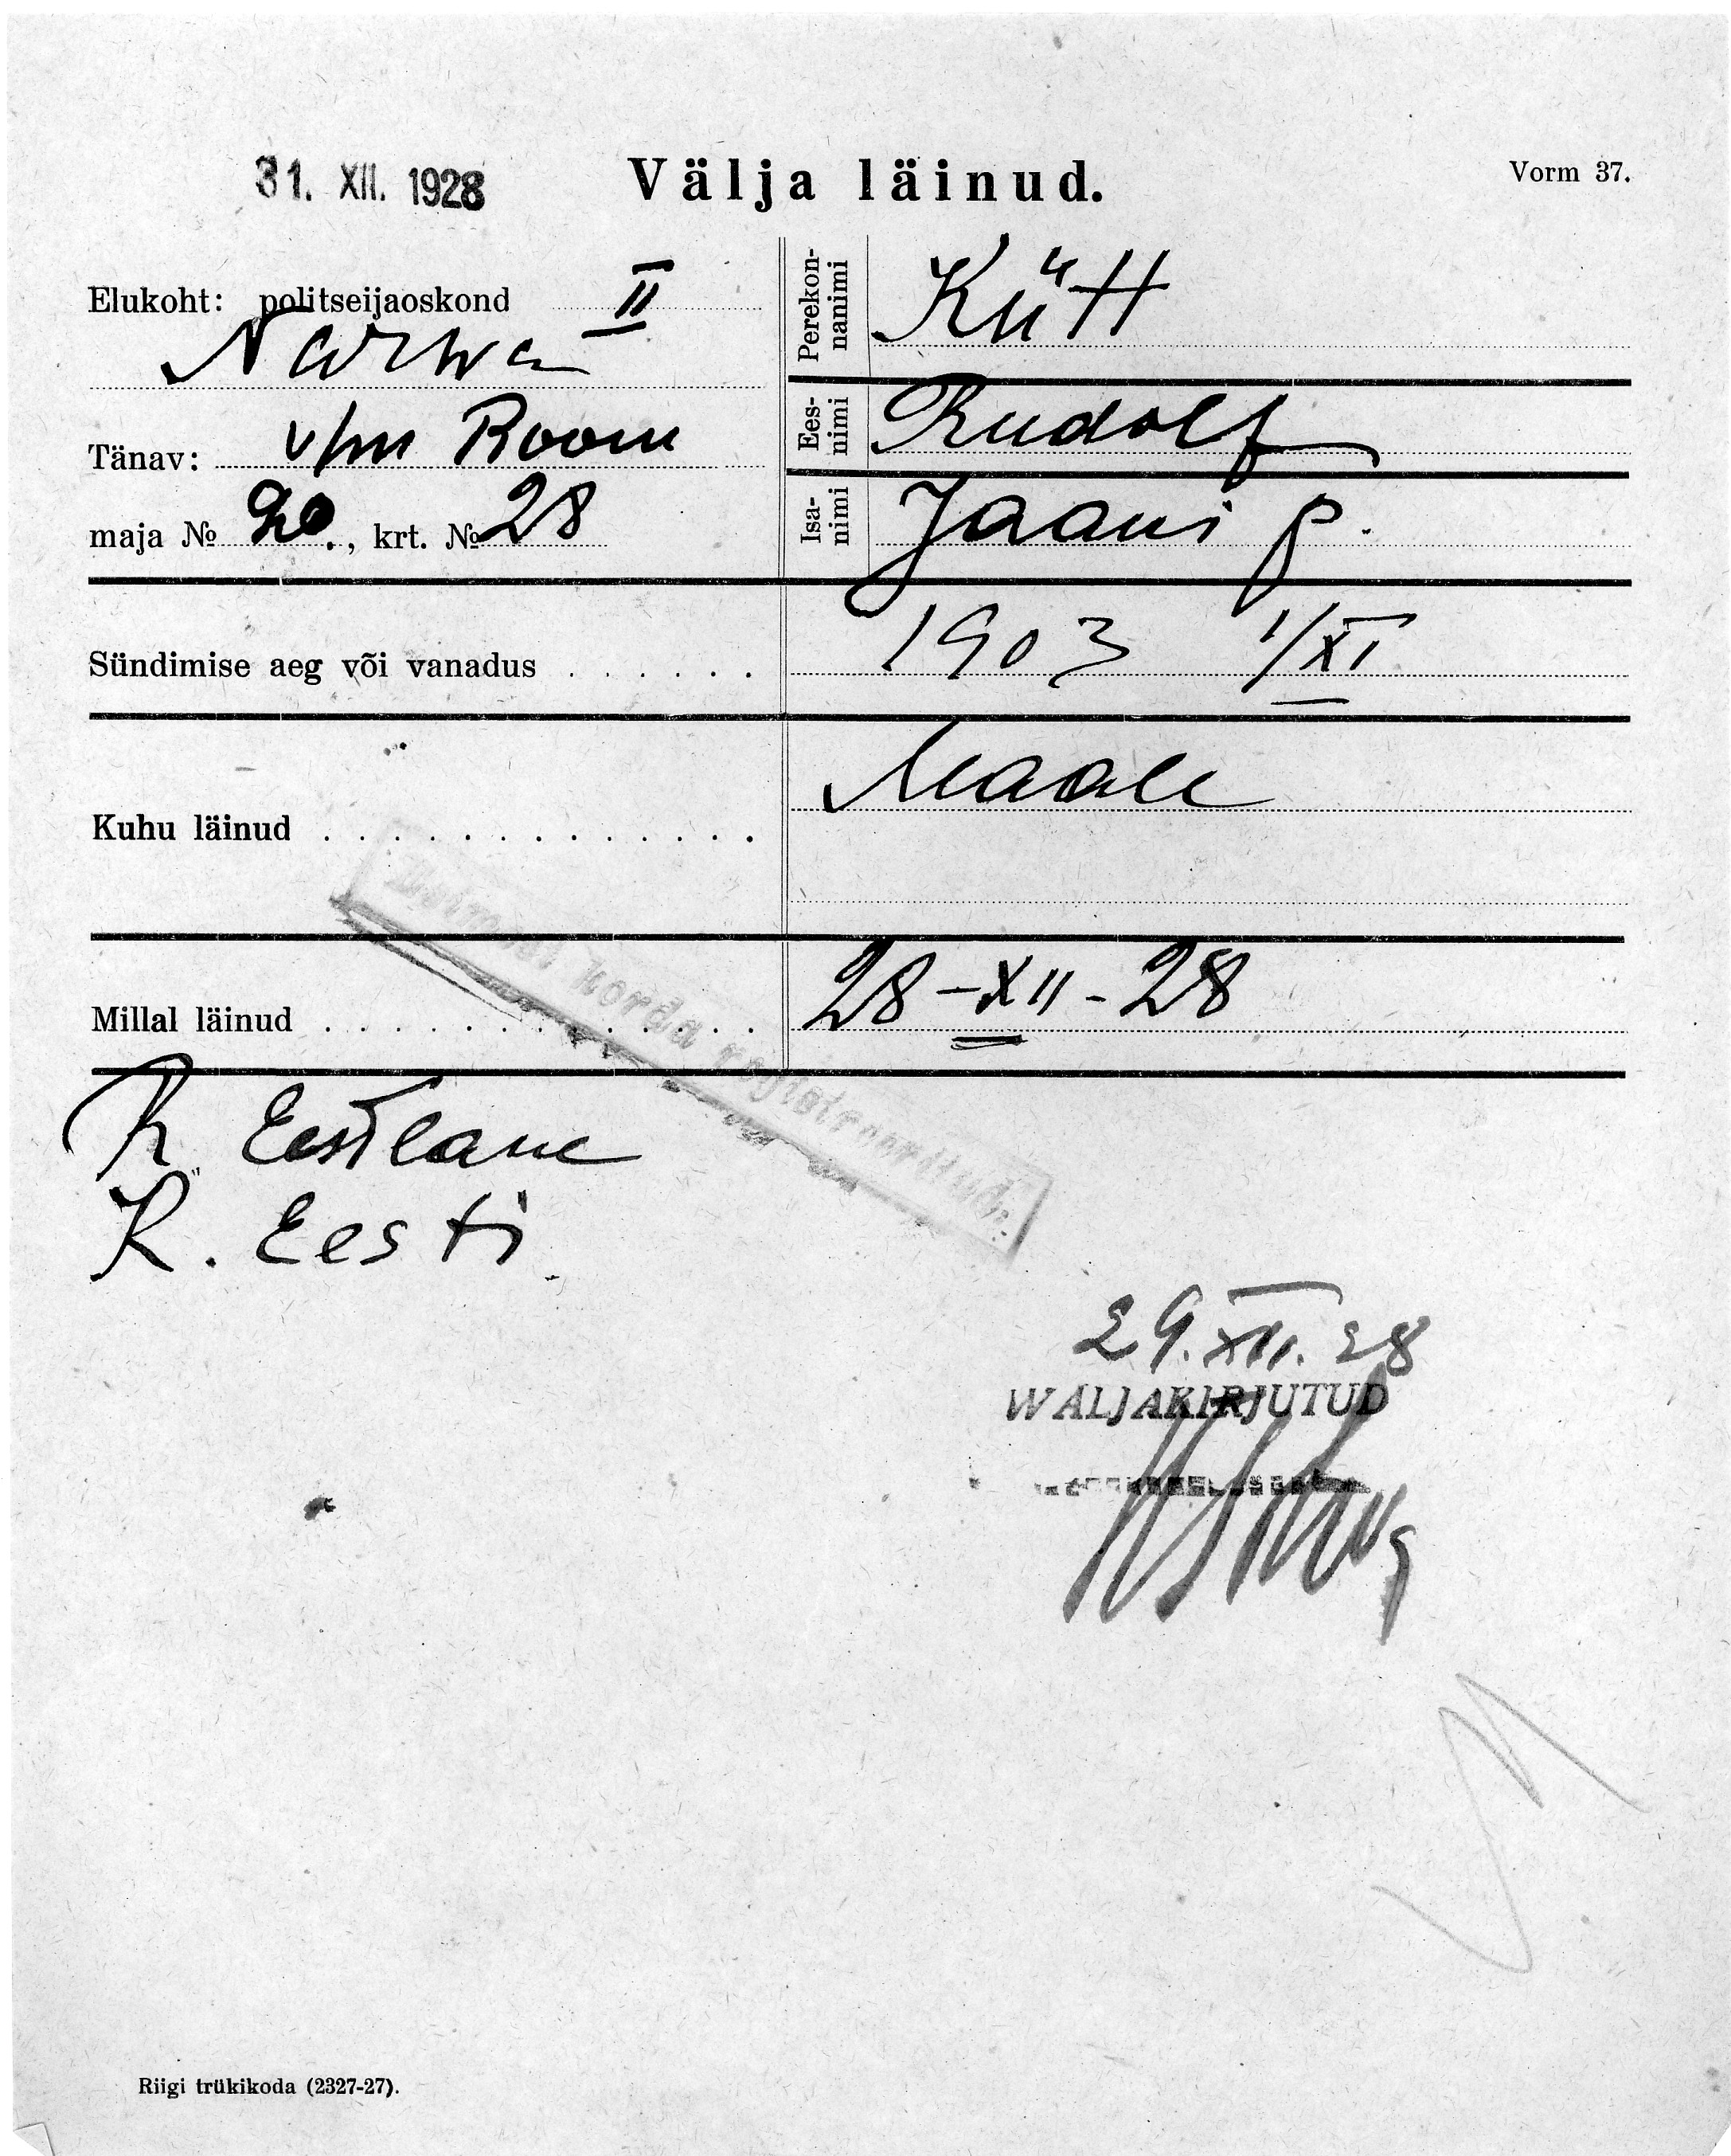 31. XII. 1928
Välja läinud.
Vorm 37.
Elukoht: politseijaoskond II
Narwa
Tänav: v/m Room
maja № 20., krt. № 28
Perekonnanimi Kütt
Eesnimi Rudolf
Isanimi Jaani p.
Sündimise aeg või vanadus . . . . . . 1903 1/XI
Kuhu läinud . . . . . . . . . . . . . . Maale
Millal läinud . . . . . . . . . . . . . . 28-XII-28
korda registreeritud.
R Eestlane
K. Eesti
29.XII.28
WÄLJAKIRJUTUD
Riigi trükikoda (2327-27).